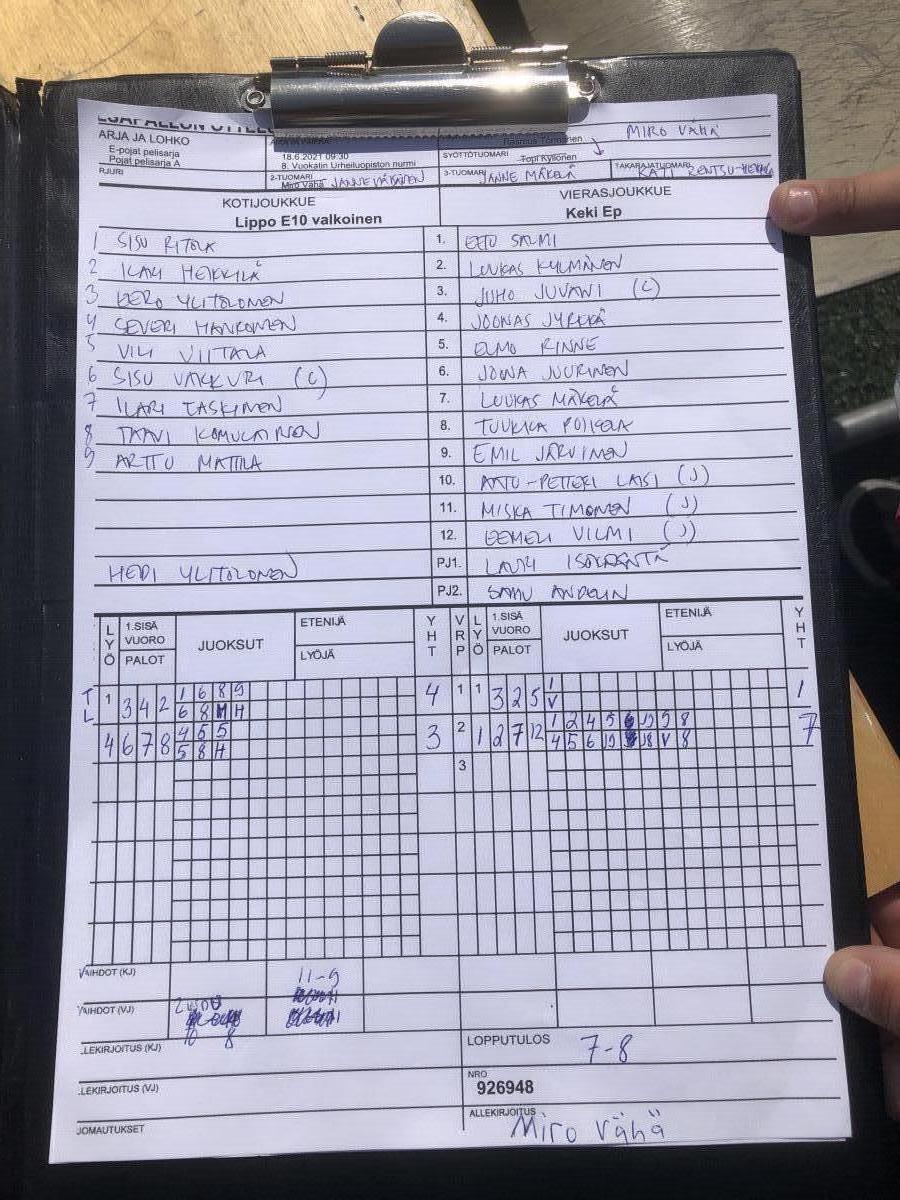 ARJA JA LOHKO
E-pojat pelisarja
Pojat pelisarja A
18.6.2021 09:30
8. Vuokatin Urheiluopiston nurmi
MIRO VÄHÄ
SYÖTTÖTUOMARI Topi Kyllönen
RJURI
2-TUOMARI Miro Vähä JANNE
3-TUOMARI JANNE MÄKELÄ
TAKARAJATUOMARI KATI
KOTIJOUKKUE
Lippo E10 valkoinen
VIERASJOUKKUE
Keki Ep
1 SISU RITOLA
2 ILARI HEIKKILÄ
3 EERO YLITOLONEN
4 SEVERI HANKONEN
5 VILI VIITALA
6 SISU VAKKURI (C)
7 ILARI TASKINEN
8 TAAVI KOMULAINEN
9 ARTTU MATTILA
HEDI YLITOLONEN
1. EETU SALMI
2. LUUKAS KYLMÄNEN
3. JUHO JUVANI (C)
4. JOONAS JYRKKÄ
5. ELMO RINNE
6. JOONA JUURINEN
7. LUUKAS MÄKELÄ
8. TUUKKA
9. EMIL JÄRVINEN
10. AATU-PETTERI LAISI (J)
11. MISKA TIMONEN (J)
12. EEMELI VILMI (J)
PJ1. LAURI
PJ2. SAMU ANDELIN
LYÖ 1.SISÄ VUORO PALOT JUOKSUT ETENIJÄ LYÖJÄ YHT VRP LYÖ 1.SISÄ VUORO PALOT JUOKSUT ETENIJÄ LYÖJÄ YHT
T 1 3 4 2 1 6 8 9 4 1 1 3 2 5 1 1
L 6 8 H H V
4 6 7 8 4 5 5 3 2 1 2 7 12 1 2 4 5 6 10 9 8 7
5 8 H 4 5 6 10 18 V 8
3
VAIHDOT (KJ) 11-9
VAIHDOT (VJ)
10 8
LEKIRJOITUS (KJ)
LOPPUTULOS 7-8
LEKIRJOITUS (VJ)
NRO
926948
JOMAUTUKSET
ALLEKIRJOITUS Miro Vähä